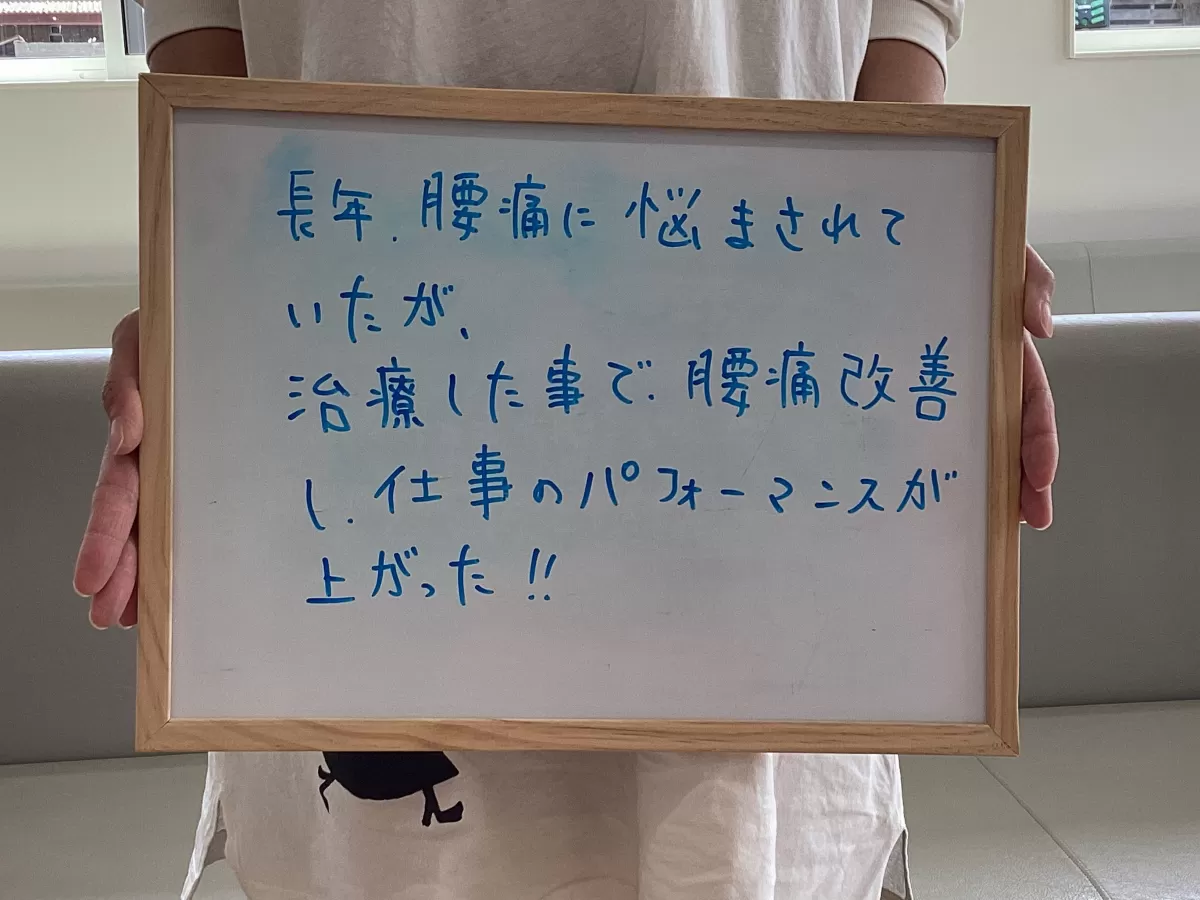 長年、腰痛に悩まされて
いたが、
治療した事で、腰痛改善
し、仕事のパフォーマンスが
上がった!!